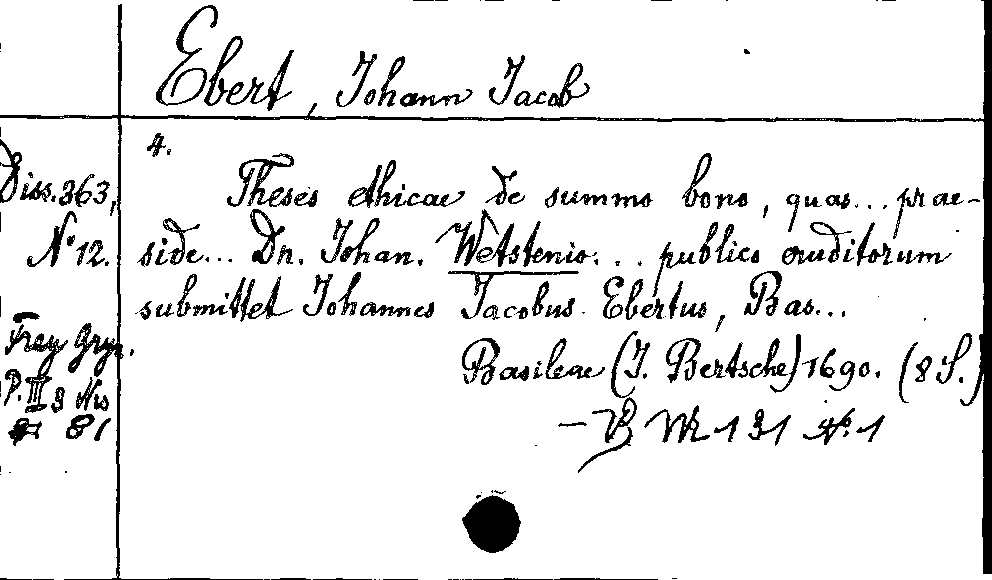 Ebert, Johann Jacob
4.
Diss. 363,
N° 12.
Theses ethicae de summo bono, quas... prae-
side... Dn. Johan. Wetstenio... publico eruditorum
submittet Johannes Jacobus Ebertus, Bas...
Basileae (J. Bertsche) 1690. (8 S.)
Frey Gryn.
P. III 3 No
81
131 N° 1